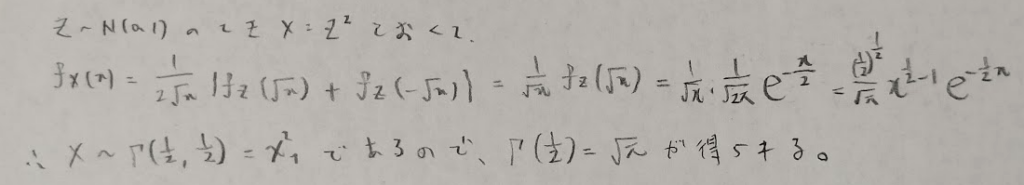 Z ~ N(0,1) のとき X = Z² とおくと.
f_X(x) = \frac{1}{2\sqrt{x}} {f_Z(\sqrt{x}) + f_Z(-\sqrt{x})} = \frac{1}{\sqrt{x}} f_Z(\sqrt{x}) = \frac{1}{\sqrt{x}} \cdot \frac{1}{\sqrt{2π}} e^{-\frac{x}{2}} = \frac{(\frac{1}{2})^{\frac{1}{2}}}{\sqrt{π}} x^{\frac{1}{2}-1} e^{-\frac{1}{2}x}
∴ X ~ Γ(\frac{1}{2}, \frac{1}{2}) = χ²₁ であるので、Γ(\frac{1}{2}) = \sqrt{π} が得られる。